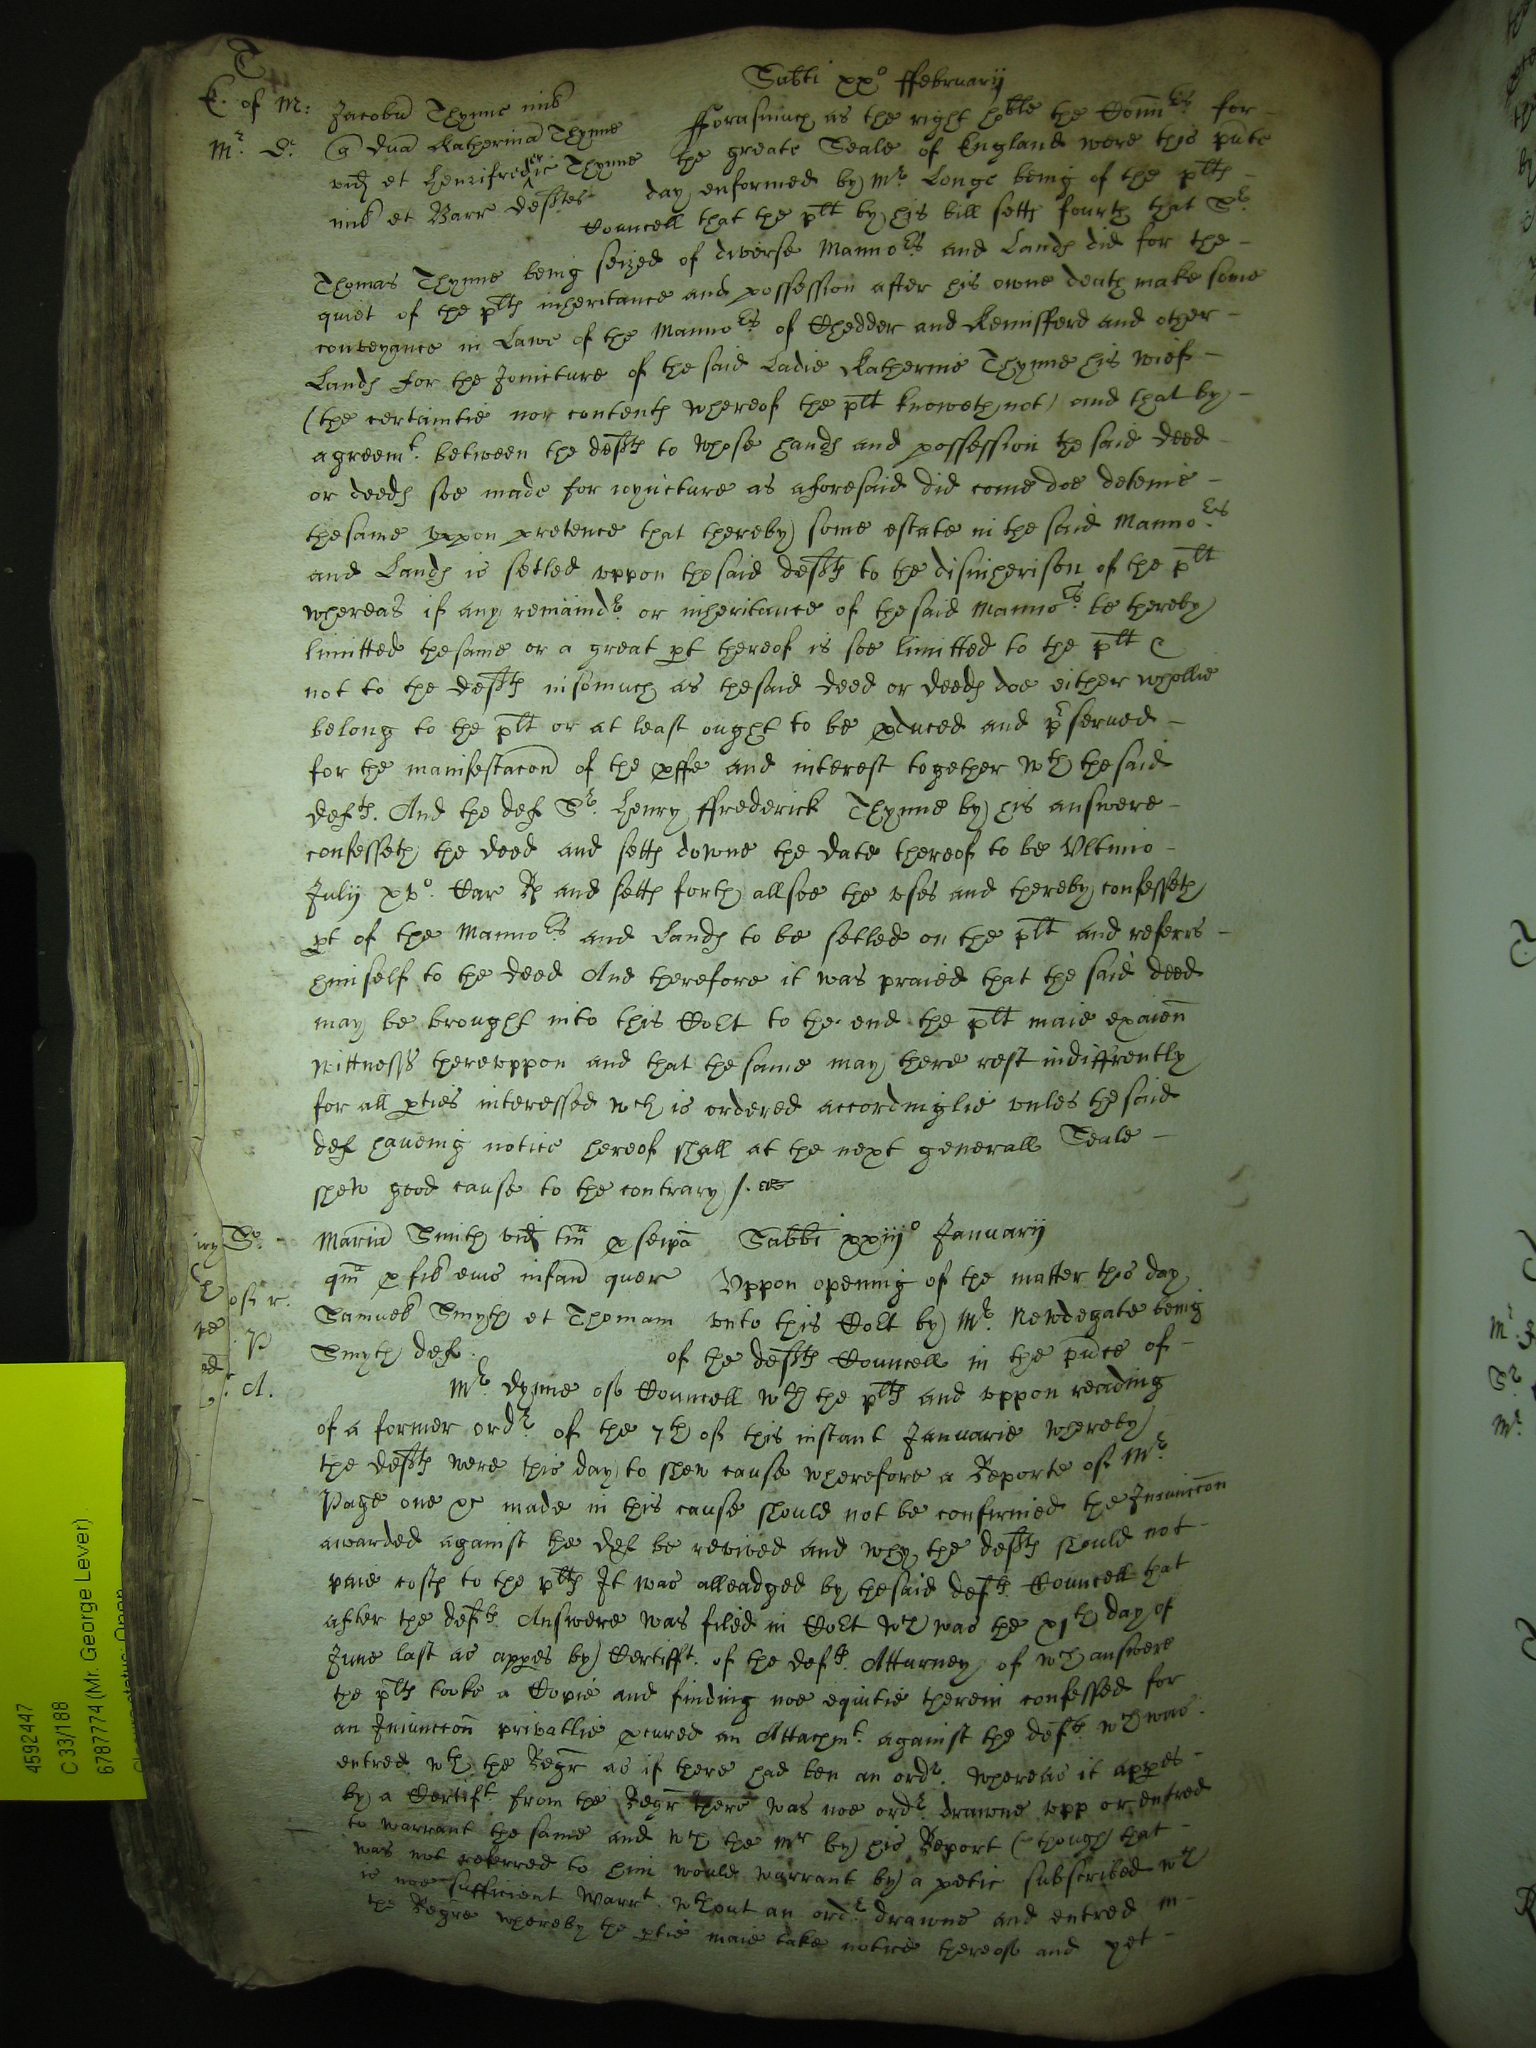 T
Sabti xxo ffebruarij
E. of M: Jacobū Thynne mil
Mr. D:
q Dnā Katherinā Thynne
vid et Henrifredericū Thynne
mil et Barr Defftes
fforasmuch as the right hoble the Comrs for
the greate Seale of England were this pnte
day enformed by Mr. Longe being of the plts
Councell that the plt by his bill setth fourth that Sr.
Thomas Thynne being seized of diverse Mannors and Lands did for the
quiet of the plts inheritance and possession after his owne death make some
conveyance in Lawe of the Mannors of Chedder and Kemisfferd and other
Lands for the Joincture of the said Ladie Katherine Thynne his wief
(the certaintie nor contents whereof the plt knoweth not) and that by
agreemt. between the defts to whose hands and possession the said deed
or deeds soe made for ioyncture as aforesaid did come doe deteine
thesame vppon pretence that thereby some estate in the said Mannors
and Lands is setled vppon thesaid defts to the disinherison of the plt
whereas if any remaindr. or inheritance of thesaid Mannors be thereby
limitted thesame or a great pt thereof is soe limitted to the plt &
not to the defts insomuch as thesaid deed or deeds doe either whollie
belong to the plt or at least ought to be pduced and pserued
for the manifestacon of the proffe and interest together wth thesaid
defts. And the def Sr. Henry ffrederick Thynne by his answere
confesseth the deed and setth downe the date thereof to be Vltimo
Julij xvo. Car R and setth forth allsoe the vses and thereby confesseth
pt of the Mannors and Lands to be setled on the plt and referrs
himself to the deed And therefore it was praied that the said deed
may be brought into this Cort to the end the plt maie exaien
wittnesss therevppon and that thesame may there rest indiffrently
for all pties interessed wch is ordered accordinglie vnles thesaid
def haueing notice hereof shall at the next generall Seale
shew good cause to the contrary /.
Mariā Smith vid tm p seipā
qm p fil eius infan quer
Samuel Smyth et Thomam
Smyth def.
Sabbi xxiijo Januarij
Vppon opening of the matter this day
vnto this Cort by Mr. Newdegate being
of the defts Councell in the pnce of
Mr. Dynne of Councell wth the plts and vppon reading
of a former ordr. of the 7th of this instant Januarie whereby
the defts were this day to shew cause wherefore a Reporte of Mr
Page one &c made in this cause should not be confirmed the Iniuncon
awarded against the def be revived and why the defts should not
paie costs to the plts It was alleadged by thesaid defts. Councell that
after the defts. Answere was filed in Cort wch was the xjth day of
June last as appes by Certifft. of the defts. Atturney of wch answere
the plts tooke a Copie and finding noe equitie therein confessed for
an Iniunccon privatlie pcured an Attachmt. against the defts. wch was
entred wth the Regr as if there had ben an ordr. whereas it appes
by a Certift. from the Regr there was noe ordr. drawne vpp or entred
to warrant thesame and wch the Mr by his Report (though that
was not referred to him would warrant by a petic subscribed wch
is noe sufficient Warrt. wthout an ordr. drawne and entred in
the Regre whereby the ptie maie take notice thereof and yet
4592447
C 33/188
6787774 (Mr. George Lever)